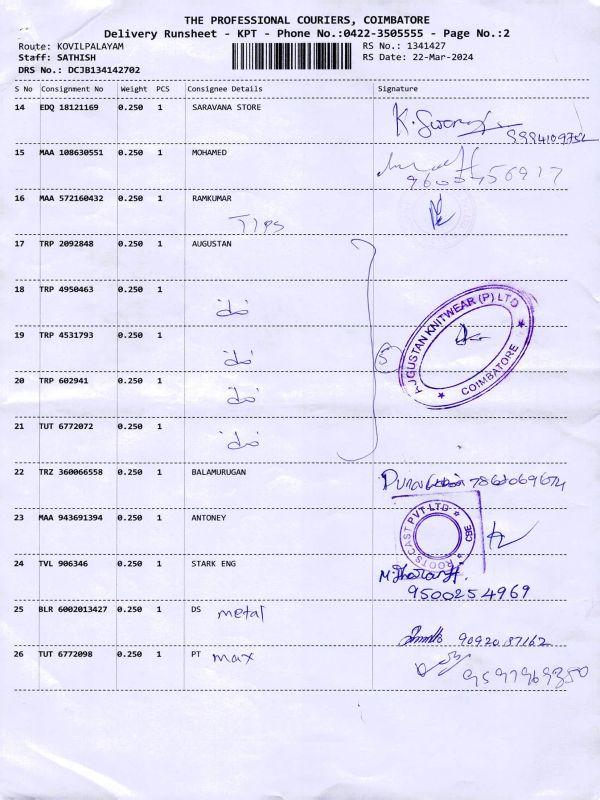 THE PROFESSIONAL COURIERS, COIMBATORE
Delivery Runsheet - KPT - Phone No.:0422-3505555 - Page No.:2
Route: KOVILPALAYAM RS No.: 1341427
Staff: SATHISH RS Date: 22-Mar-2024
DRS No.: DCJB134142702
S No Consignment No Weight PCS Consignee Details Signature
14 EDQ 18121169 0.250 1 SARAVANA STORE
15 MAA 108630551 0.250 1 MOHAMED
16 MAA 572160432 0.250 1 RAMKUMAR
TIPS
17 TRP 2092848 0.250 1 AUGUSTAN
18 TRP 4950463 0.250 1
"do"
AUGUSTAN KNITWEAR (P) LTD
COIMBATORE
19 TRP 4531793 0.250 1
"do" 5
20 TRP 602941 0.250 1
"do"
21 TUT 6772072 0.250 1
"do"
22 TRZ 360066558 0.250 1 BALAMURUGAN
23 MAA 943691394 0.250 1 ANTONEY
ROOTS CAST PVT LTD CBE
24 TVL 906346 0.250 1 STARK ENG
9500254969
25 BLR 6002013427 0.250 1 DS metal
9092087162
26 TUT 6772098 0.250 1 PT max